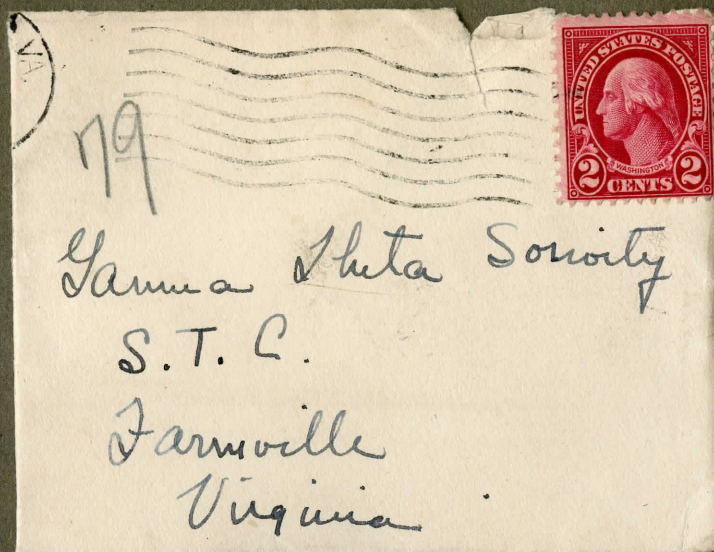 VA.
UNITED STATES POSTAGE
WASHINGTON
2 CENTS 2
79
Gamma Theta Sorority
S. T. C.
Farmville
Virginia